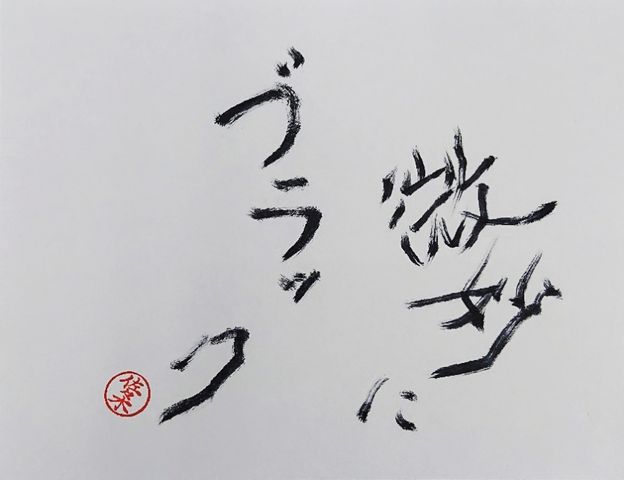 微妙に
ブラック